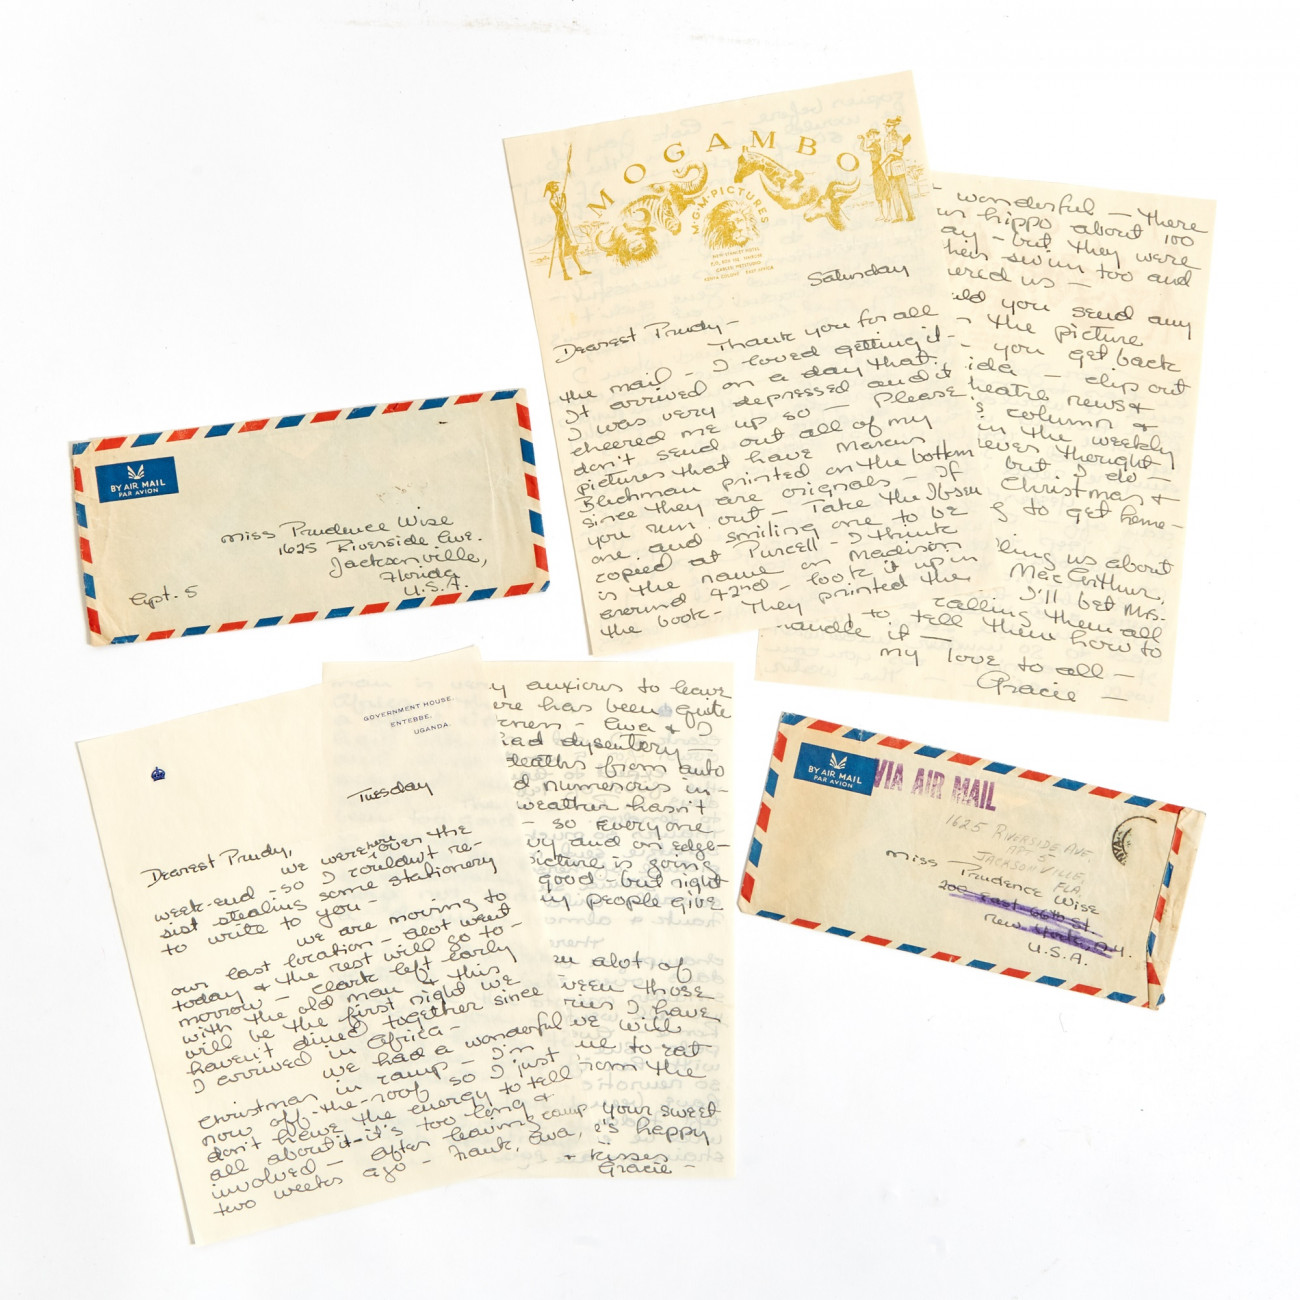 MOGAMBO
M-G-M PICTURES
NEW STANLEY HOTEL
KENYA COLONY EAST AFRICA
Saturday
Dearest Prudy-
Thank you for all
the mail - I loved getting it -
It arrived on a day that
I was very depressed and it
cheered me up so - Please
don't send out all of my
pictures that have Marcus
Blechman printed on the bottom
since they are orignals - If
you run out - Take the Ibsen
one and smiling one to be
copied at Purcell - I think
is the name on Madison
around 42nd - look it up in
the book - They printed the
wonderful - there
hippo about 100
ay - but they were
swim too and
ered us -
ld you send any
the picture
you get back
ida - clip out
heatre news &
column &
in the weekly
iever thought
but I do -
Christmas &
g to get home -
ling us about
MacArthur.
I'll bet Mrs.
calling them all
to tell them how to
handle it -
my love to all -
Gracie -
BY AIR MAIL
PAR AVION
Miss Prudence Wise
1625 Riverside Ave.
Jacksonville,
Florida
U.S.A.
Apt. 5
GOVERNMENT HOUSE,
ENTEBBE,
UGANDA.
Tuesday
Dearest Prudy,
we were here over the
week-end - so I couldn't re-
sist stealing some stationery
to write to you -
we are moving to
our last location - alot went
today & the rest will go to-
morrow - Clark left early
with the old man & this
will be the first night we
haven't dined together since
I arrived in Africa -
we had a wonderful
Christmas in camp - I'm
now off-the-roof so I just
don't have the energy to tell
all about it - it's too long &
involved - After leaving camp
two weeks ago - Frank, Ava,
y anxious to leave
ere has been quite
kness - Ava & I
had dysentery -
deaths from auto
d numerous in-
weather hasn't
- so everyone
vy and on edge -
picture is going
good but right
ny people give
alot of
ween those
ries I have
we will
ue to rat
from the
your sweet
's happy
& kisses
Gracie -
BY AIR MAIL
PAR AVION
VIA AIR MAIL
1625 RIVERSIDE AVE.
APT. 5
JACKSONVILLE,
FLA.
Miss Prudence Wise
200 East 66th St.
New York, N.Y.
U.S.A.